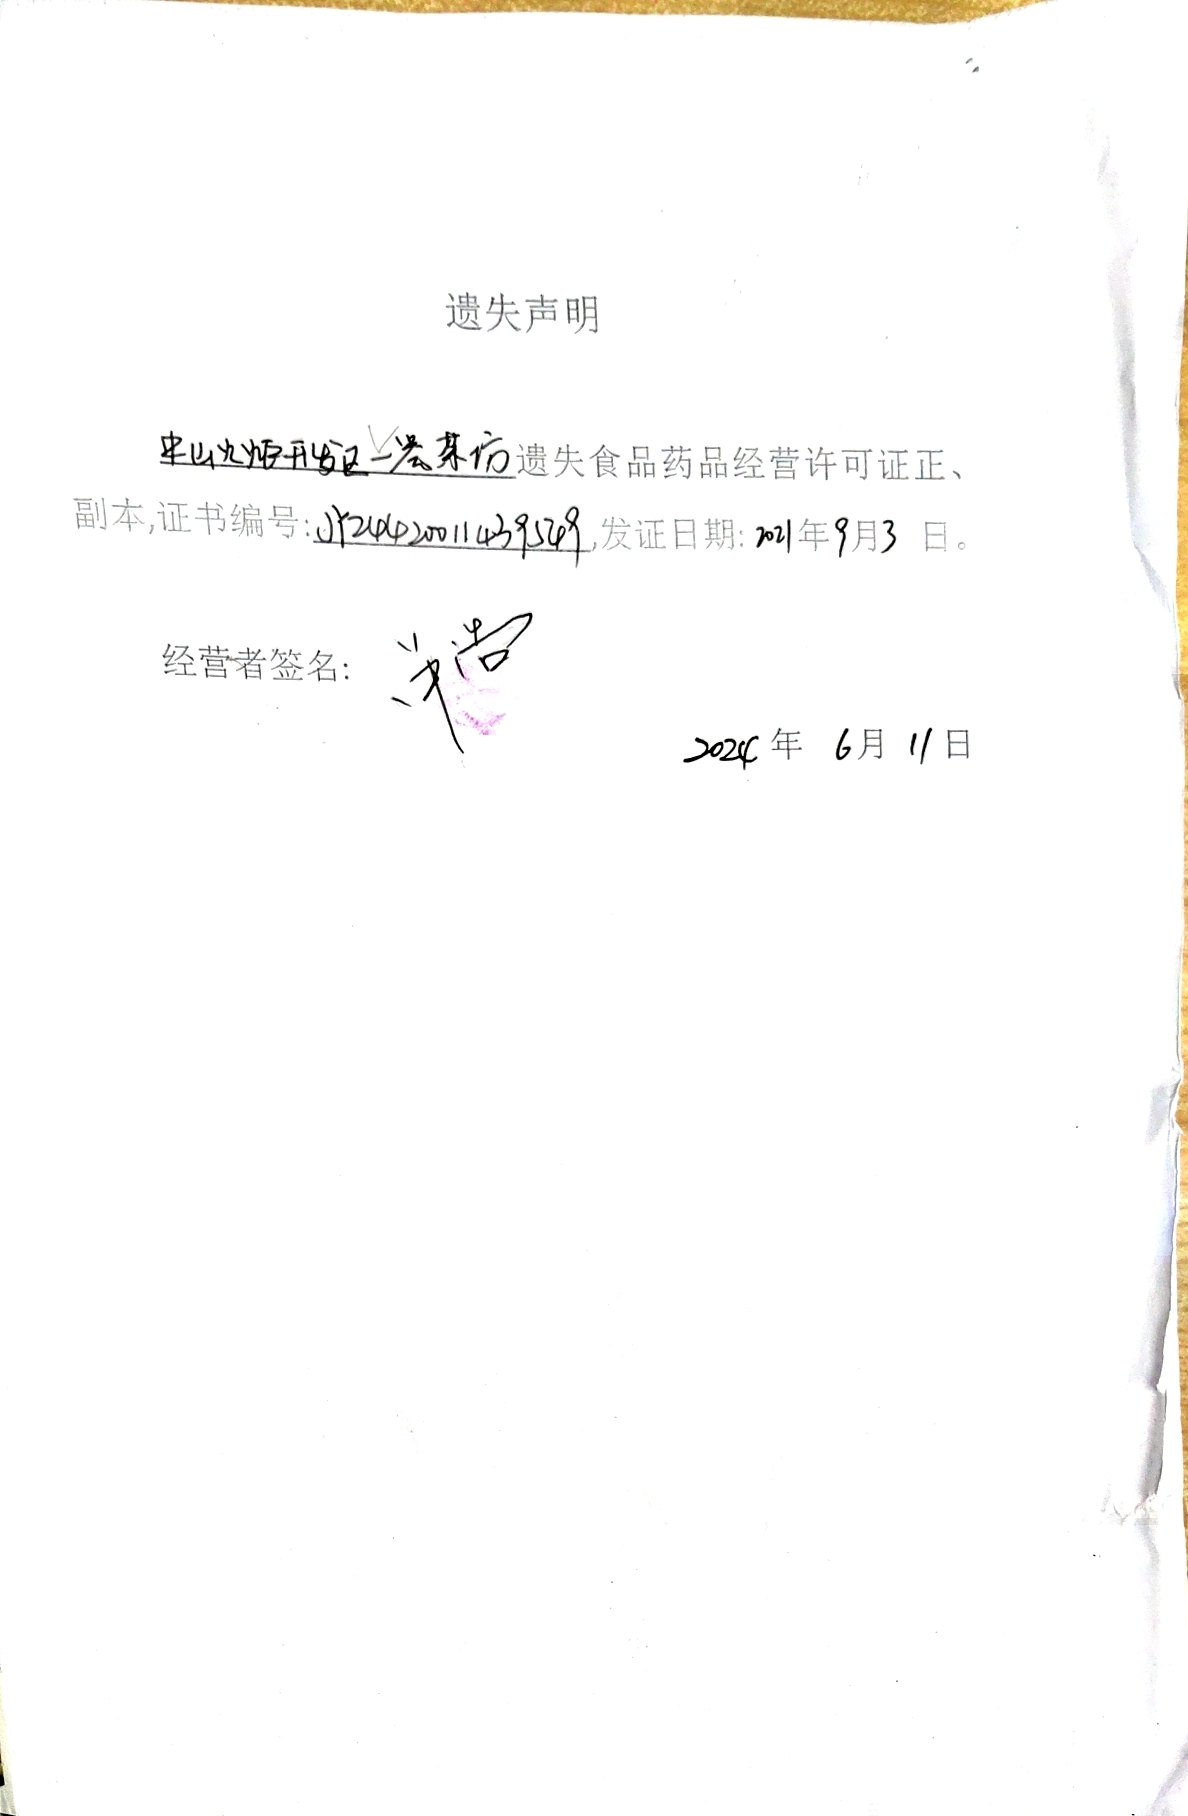 遗失声明
中山火炬开发区一尝菜坊遗失食品药品经营许可证正、
副本,证书编号:JY24420011439549,发证日期:2021年9月3日。
经营者签名:
2024年 6月 11日